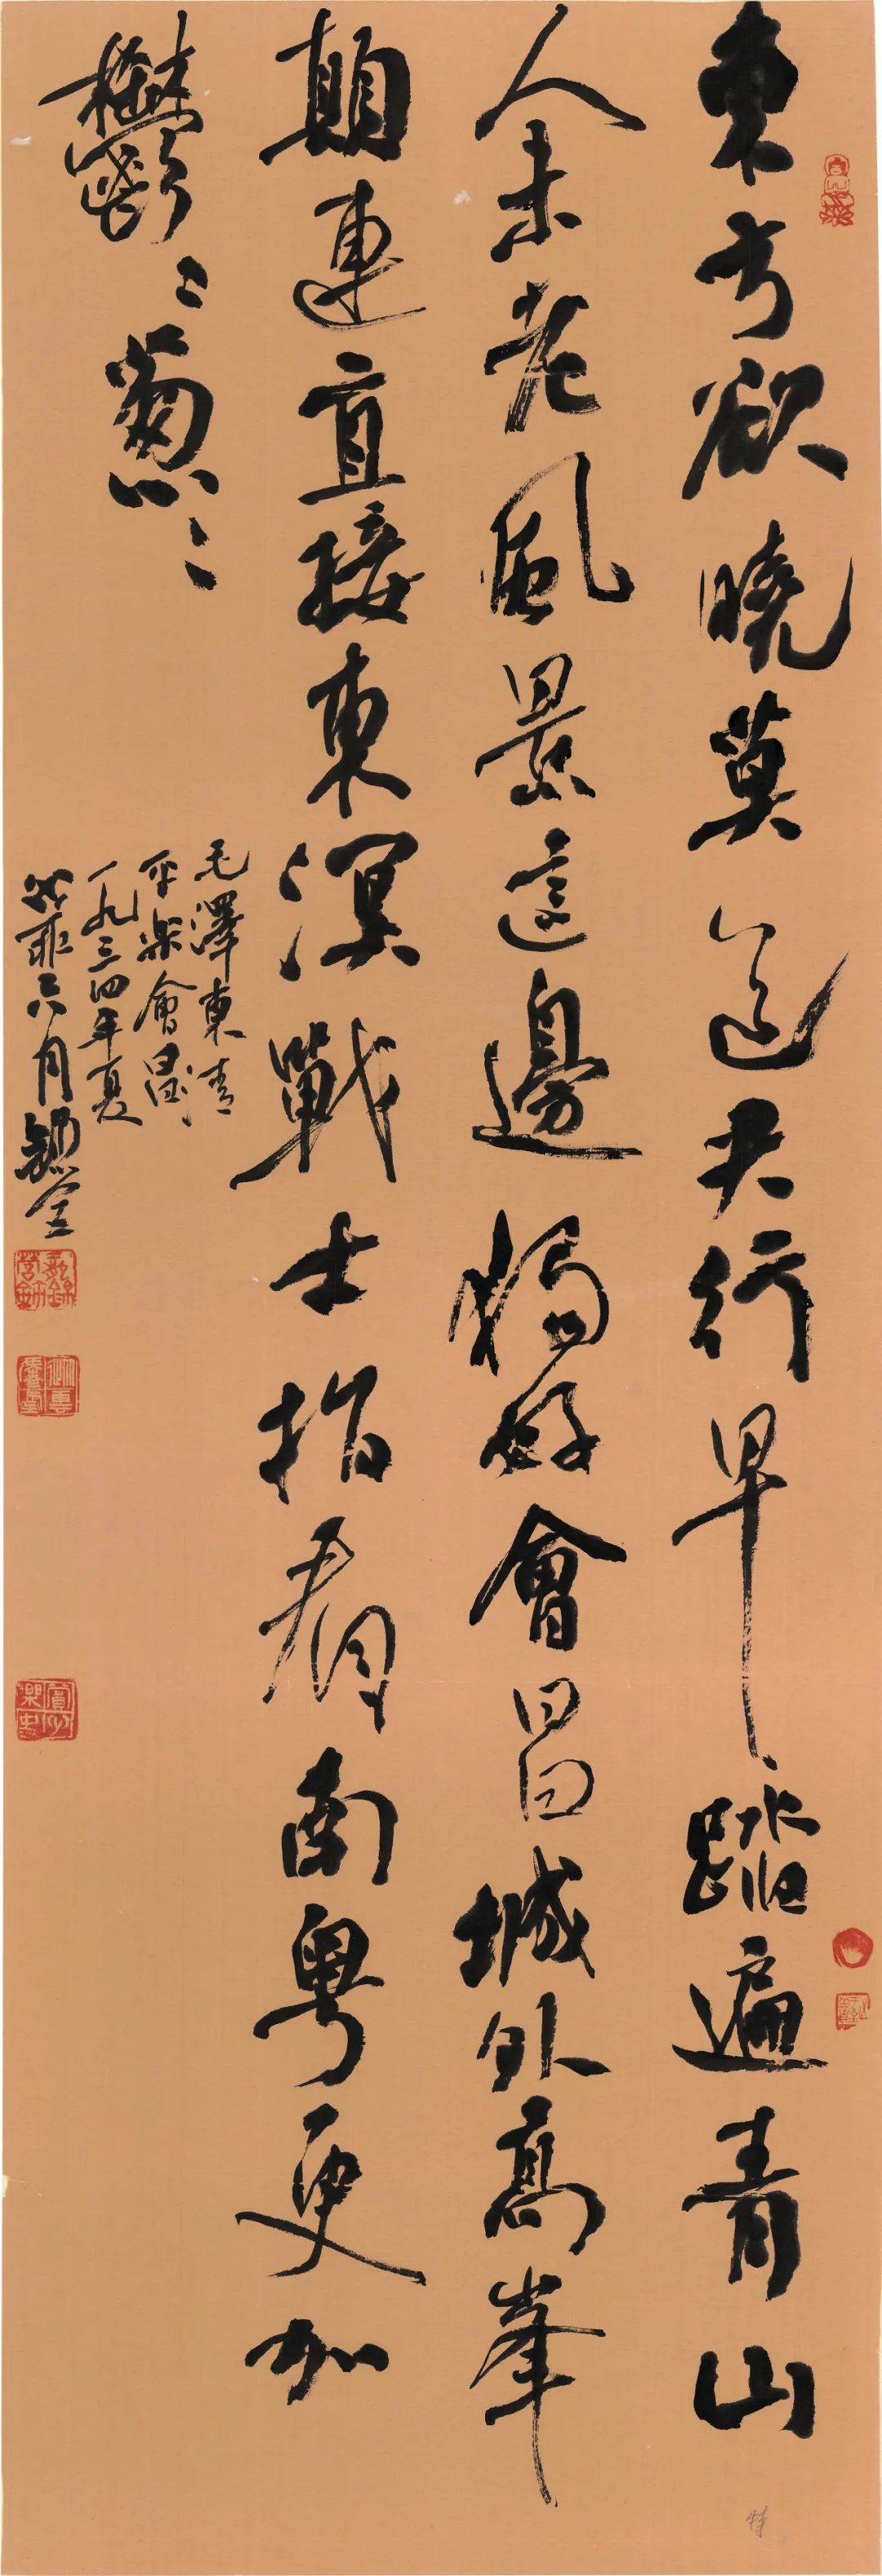 東方欲曉莫道君行早踏遍青山
人未老風景這邊獨好會昌城外高峯
顛連直接東溟戰士指看南粤更加
鬱〻葱〻
毛澤東清
平樂會昌
一九三四年夏
六月
特